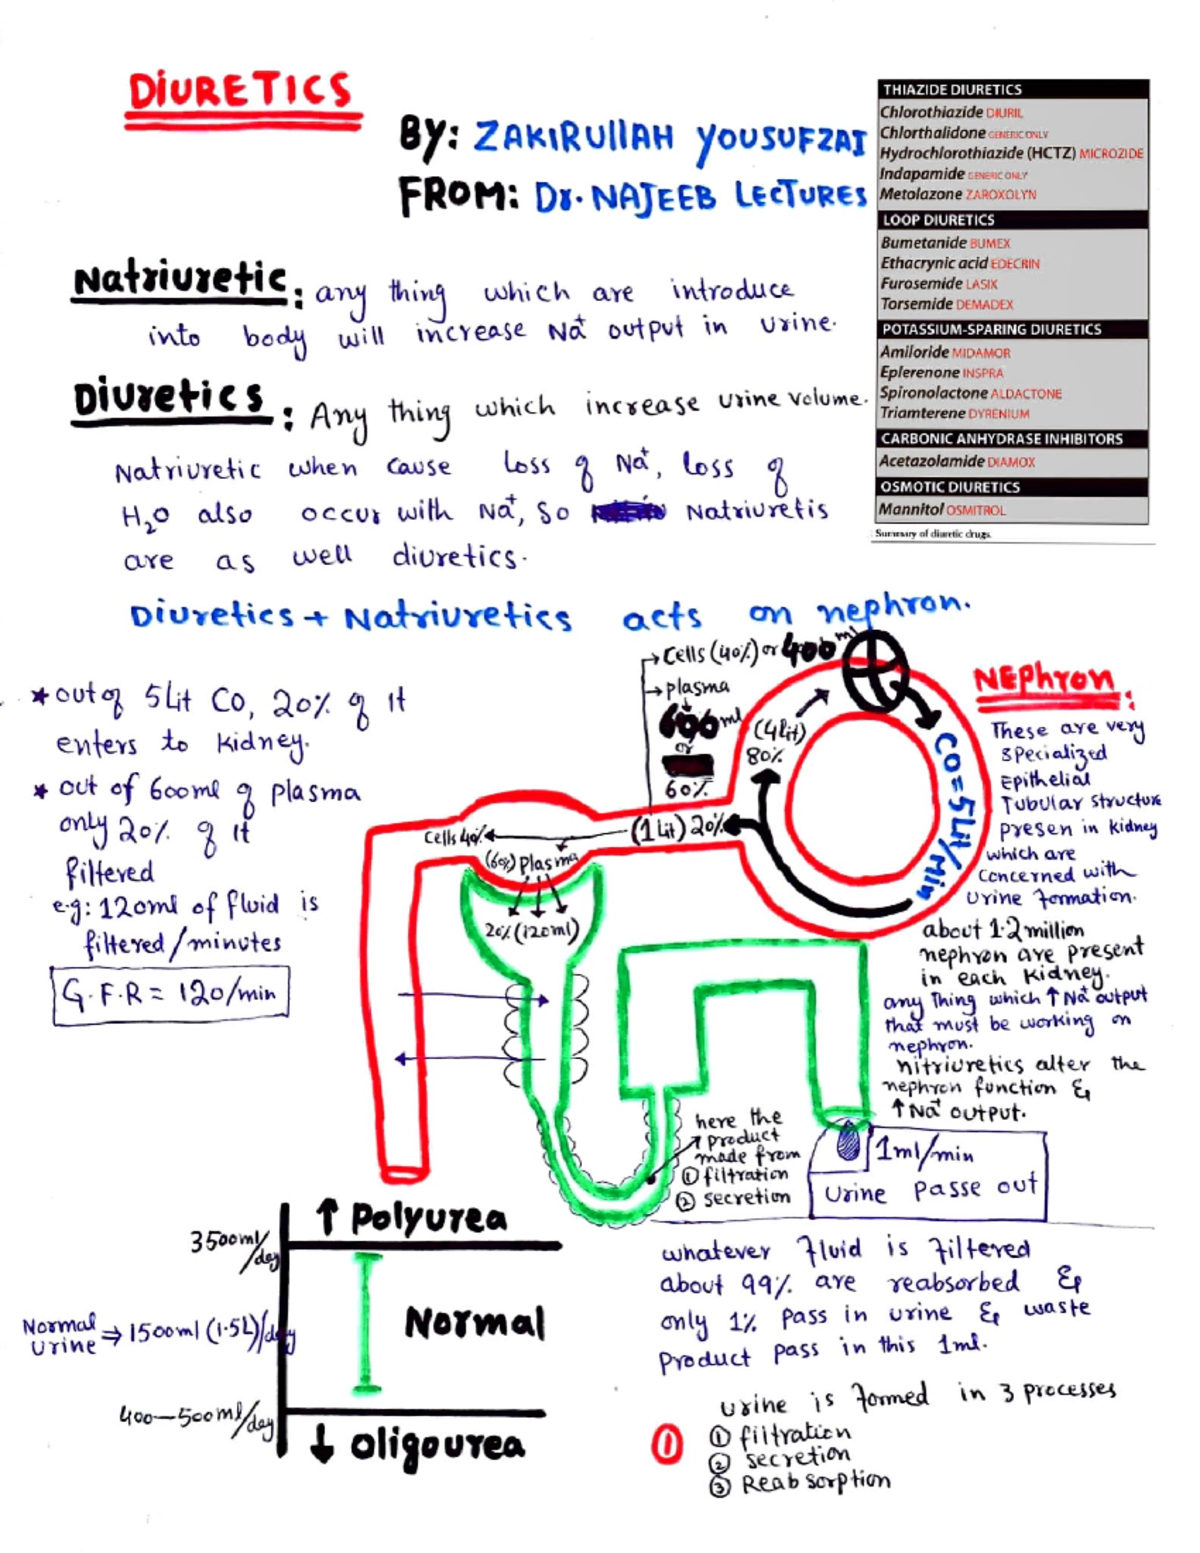 DiURETICS
BY: ZAKIRUllAH YOUSUFZAI
FROM: Dr. NAJEEB LECTURES
THIAZIDE DIURETICS
Chlorothiazide DIURIL
Chlorthalidone GENERIC ONLY
Hydrochlorothiazide (HCTZ) MICROZIDE
Indapamide GENERIC ONLY
Metolazone ZAROXOLYN
LOOP DIURETICS
Bumetanide BUMEX
Ethacrynic acid EDECRIN
Furosemide LASIX
Torsemide DEMADEX
POTASSIUM-SPARING DIURETICS
Amiloride MIDAMOR
Eplerenone INSPRA
Spironolactone ALDACTONE
Triamterene DYRENIUM
CARBONIC ANHYDRASE INHIBITORS
Acetazolamide DIAMOX
OSMOTIC DIURETICS
Mannitol OSMITROL
Summary of diuretic drugs.
Natriuretic: any thing which are introduce
into body will increase Na⁺ output in urine.
Diuretics: Any thing which increase urine volume.
Natriuretic when cause loss of Na⁺, loss of
H₂O also occur with Na⁺, So Natriuretis
are as well diuretics.
Diuretics + Natriuretics acts on nephron.
* out of 5Lit CO, 20% of It
enters to kidney.
* out of 600ml of plasma
only 20% of It
filtered
e.g: 120ml of fluid is
filtered/minutes
G.F.R = 120/min
Cells (40%) or 400 ml
plasma
600 ml
or
60%
(4Lit)
80%
(1 Lit) 20%
CO = 5Lit/min
Cells 40%
(60%) plasma
20% (120ml)
NEphron:
These are very
specialized
Epithelial
Tubular structure
presen in kidney
which are
concerned with
urine formation.
about 1.2 million
nephron are present
in each kidney.
any thing which ↑ Na⁺ output
that must be working on
nephron.
nitriuretics alter the
nephron function &
↑ Na⁺ output.
here the
product
made from
① filtration
② secretion
1ml/min
Urine Passe out
3500ml/day
↑ Polyurea
Normal Urine ⇒ 1500ml (1.5L)/day
Normal
400—500ml/day
↓ oligourea
whatever fluid is filtered
about 99% are reabsorbed &
only 1% pass in urine & waste
product pass in this 1ml.
urine is formed in 3 processes
① filtration
② secretion
③ Reabsorption
①